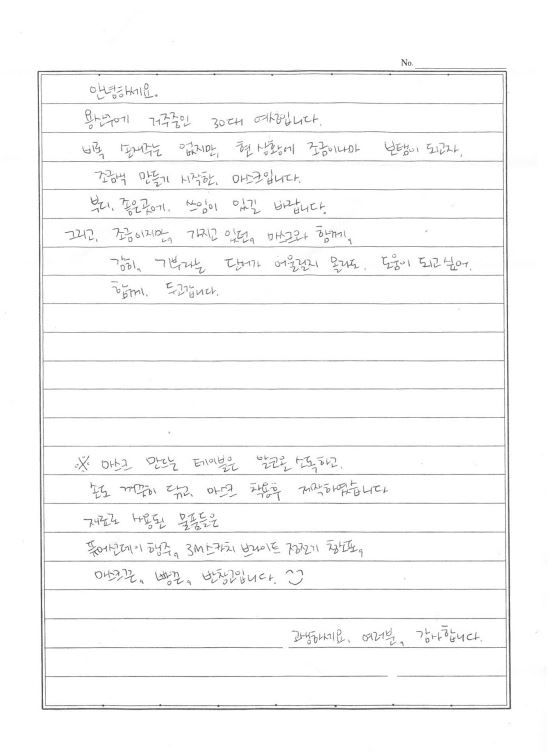 No.
안녕하세요.
용산구에 거주중인 30대 여성입니다.
비록 손재주는 없지만, 현 상황에 조금이나마 보탬이 되고자,
조금씩 만들기 시작한, 마스크입니다.
부디, 좋은곳에, 쓰임이 있길 바랍니다.
그리고, 조금이지만, 가지고 있던, 마스크와 함께,
감히, 기부라는 단어가 어울릴지 몰라도, 도움이 되고싶어,
함께, 두고갑니다.
※ 마스크 만드는 테이블은 알코올 소독하고,
손도 깨끗이 닦고, 마스크 착용후 제작하였습니다
재료로 사용된 물품들은
퓨어썬데이 행주, 3M스카치 브라이트 정전기 청소포,
마스크끈, 빵끈, 반창고입니다.
고생하세요, 여러분, 감사합니다.